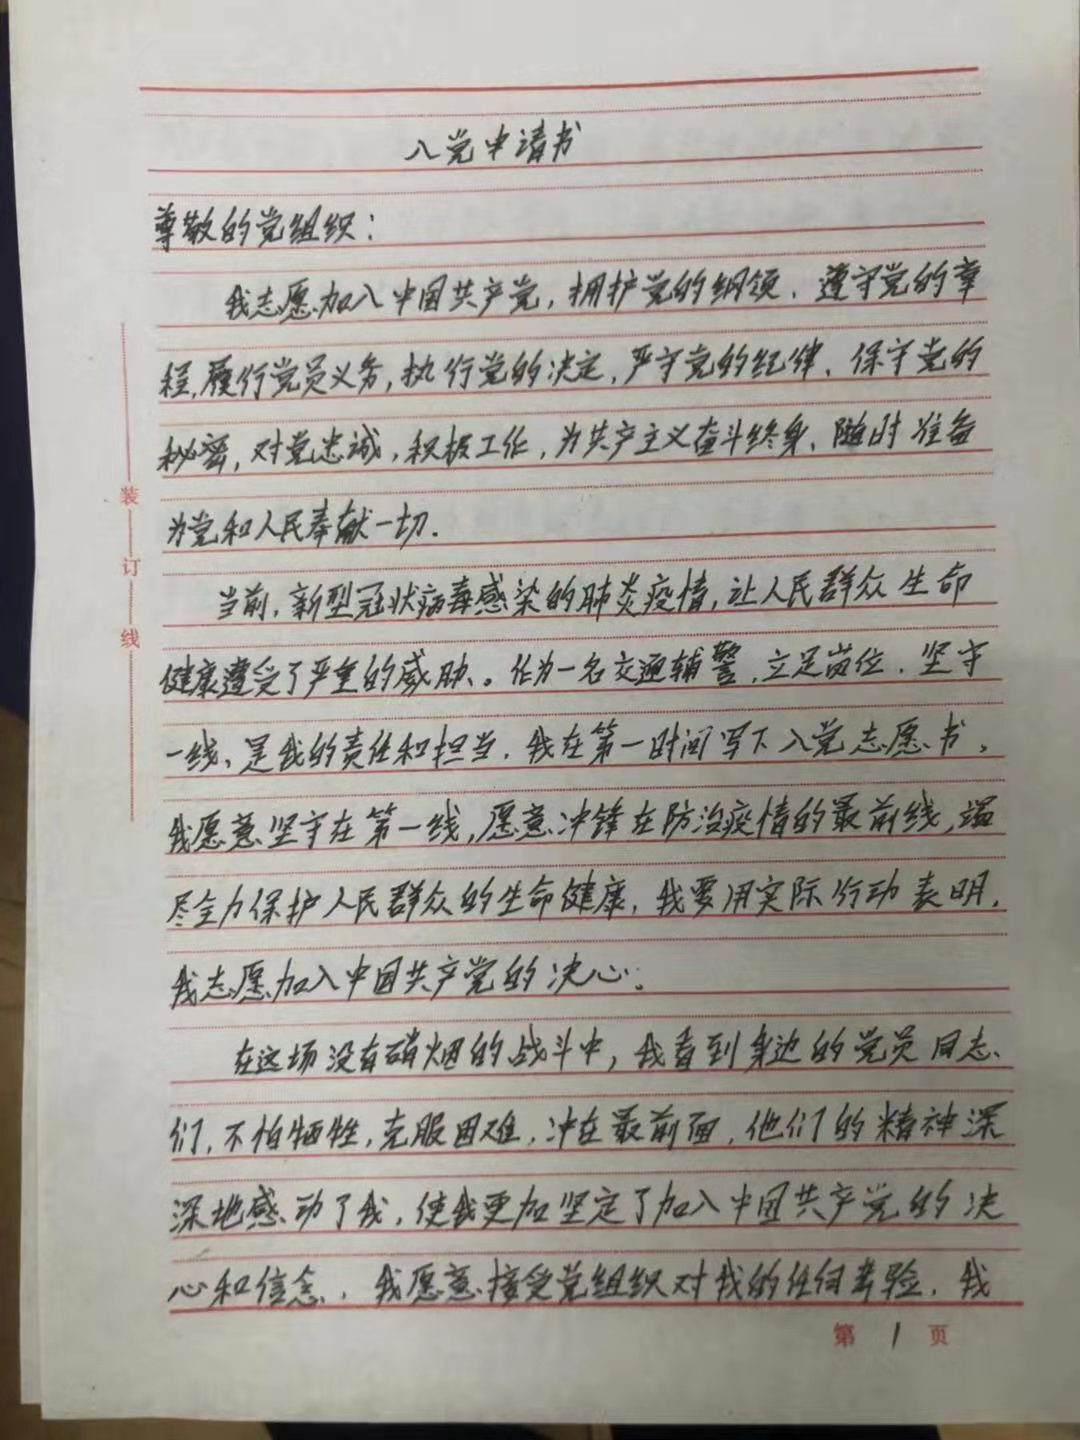 入党申请书
尊敬的党组织：
我志愿加入中国共产党，拥护党的纲领、遵守党的章
程，履行党员义务，执行党的决定，严守党的纪律、保守党的
秘密，对党忠诚，积极工作，为共产主义奋斗终身、随时准备
为党和人民奉献一切．
当前，新型冠状病毒感染的肺炎疫情，让人民群众生命
健康遭受了严重的威胁。作为一名交通辅警，立足岗位．坚守
一线、是我的责任和担当．我在第一时间写下入党志愿书，
我愿意坚守在第一线，愿意冲锋在防治疫情的最前线，竭
尽全力保护人民群众的生命健康，我要用实际行动表明，
我志愿加入中国共产党的决心。
在这场没有硝烟的战斗中，我看到身边的党员同志
们，不怕牺牲，克服困难，冲在最前面，他们的精神深
深地感动了我，使我更加坚定了加入中国共产党的决
心和信念．我愿意接受党组织对我的任何考验．我
装订线
第 1 页